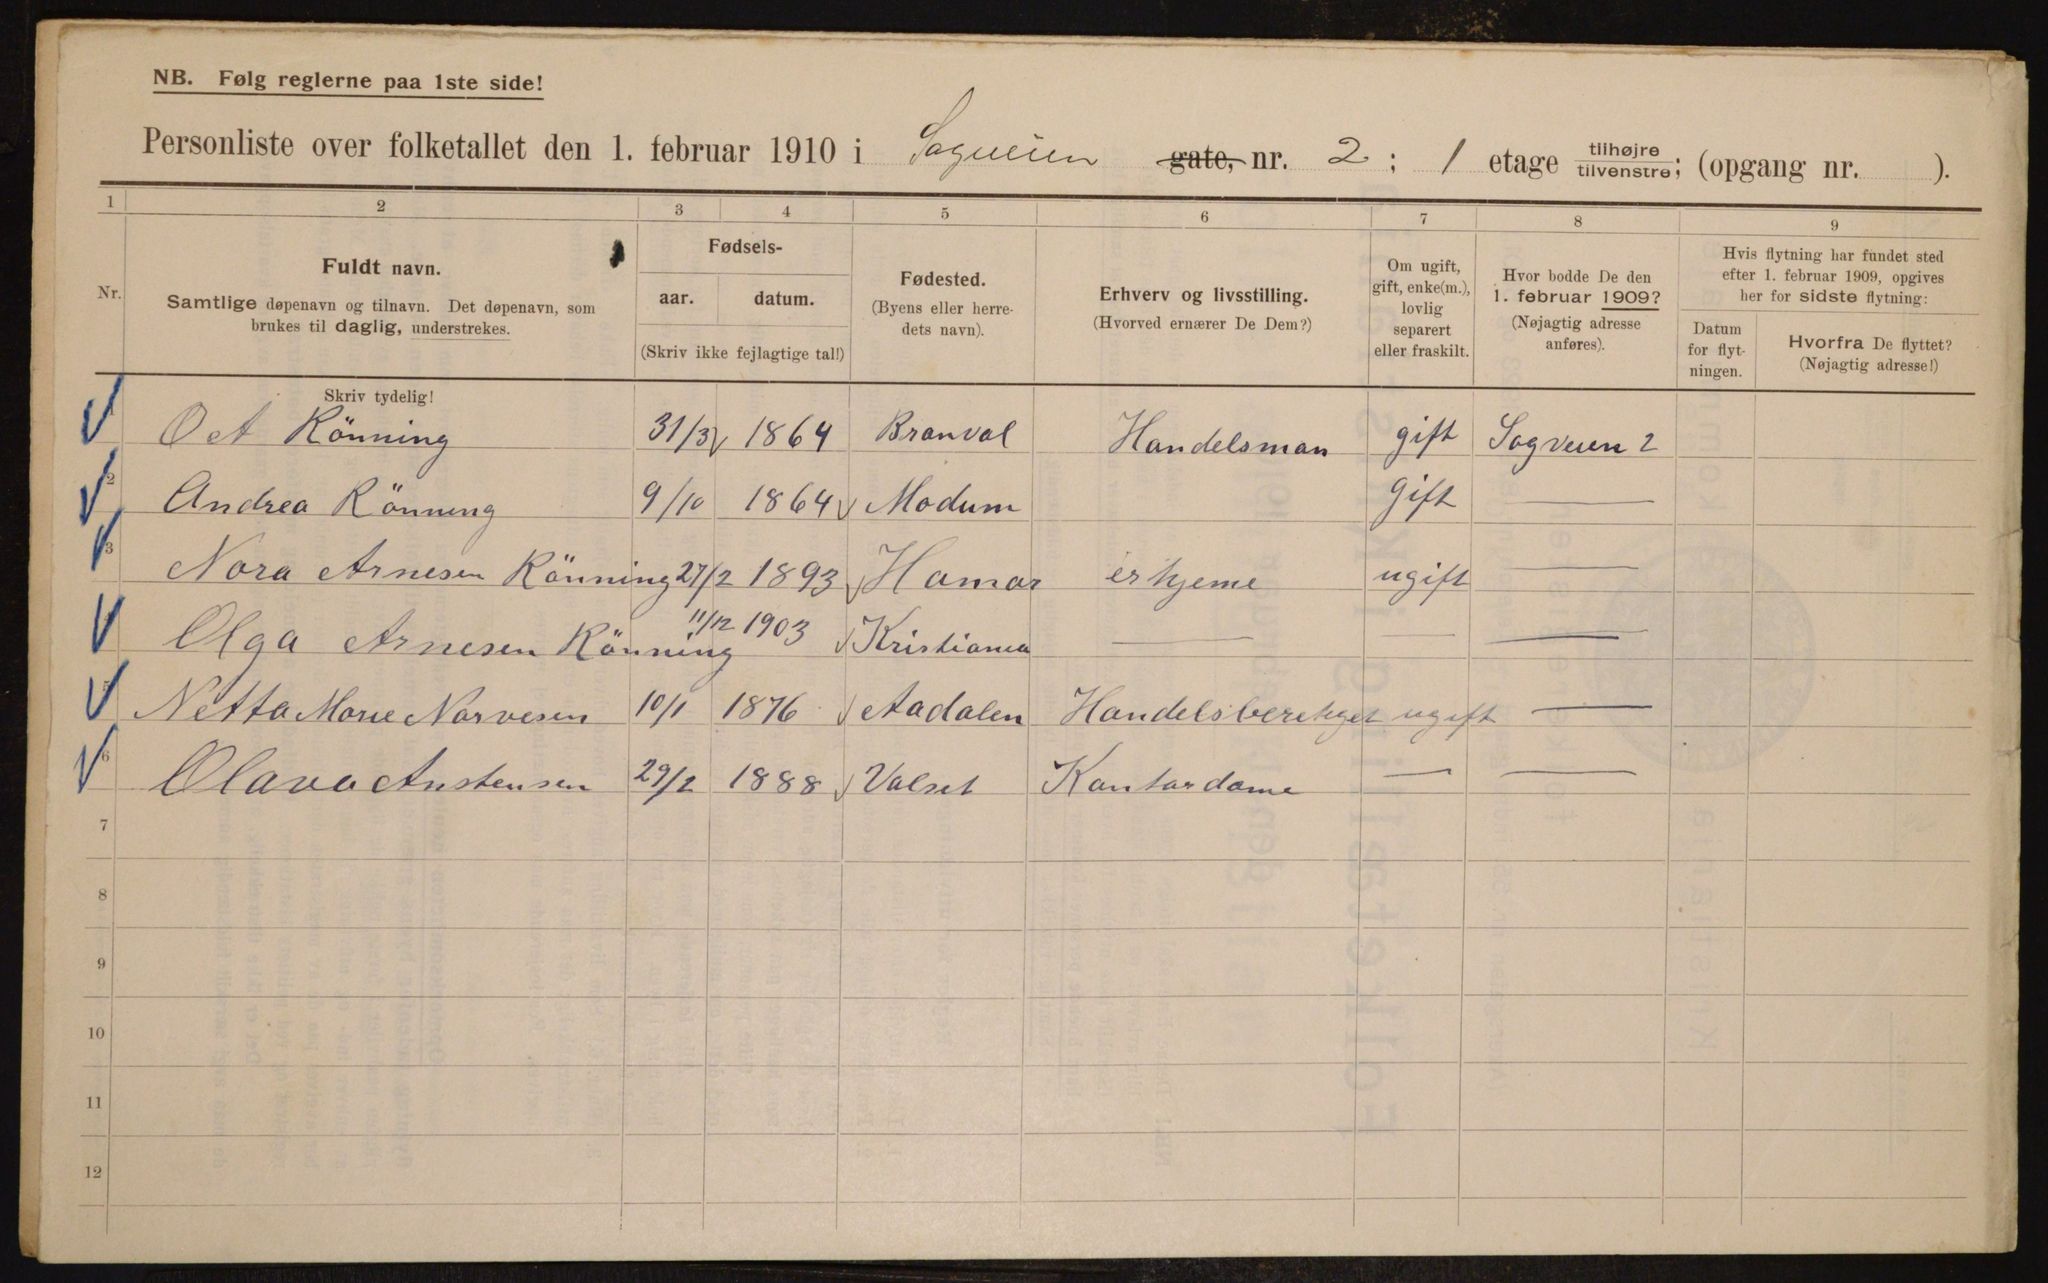 NB. Følg reglerne paa 1ste side!
Personliste over folketallet den 1. februar 1910 i Sagveien gate, nr. 2 ; 1 etage tilhøjre tilvenstre; (opgang nr. ).
1 2 3 4 5 6 7 8 9
Nr.
Fuldt navn.
Samtlige døpenavn og tilnavn. Det døpenavn, som
brukes til daglig, understrekes.
Skriv tydelig!
Fødsels-
aar. datum.
(Skriv ikke fejlagtige tal!)
Fødested.
(Byens eller herre-
dets navn).
Erhverv og livsstilling.
(Hvorved ernærer De Dem?)
Om ugift,
gift, enke(m.),
lovlig
separert
eller fraskilt.
Hvor bodde De den
1. februar 1909?
(Nøjagtig adresse
anføres).
Hvis flytning har fundet sted
efter 1. februar 1909, opgives
her for sidste flytning:
Datum
for flyt-
ningen.
Hvorfra De flyttet?
(Nøjagtig adresse!)
1 O et Rönning 31/3 1864 Branval Handelsman gift Sagveien 2
2 Andrea Rönning 9/10 1864 Modum gift —
3 Nora Arnesen Rönning 27/2 1893 Hamar er hjeme ugift —
Olga Arnesen Rönning 11/12 1903 Kristiania — — —
5 Netta Marie Narvesen 10/1 1876 Aadalen Handelsberetiget ugift —
6 Olava Anstensen 29/2 1888 Valset Kontordame — —
7
8
9
10
11
12